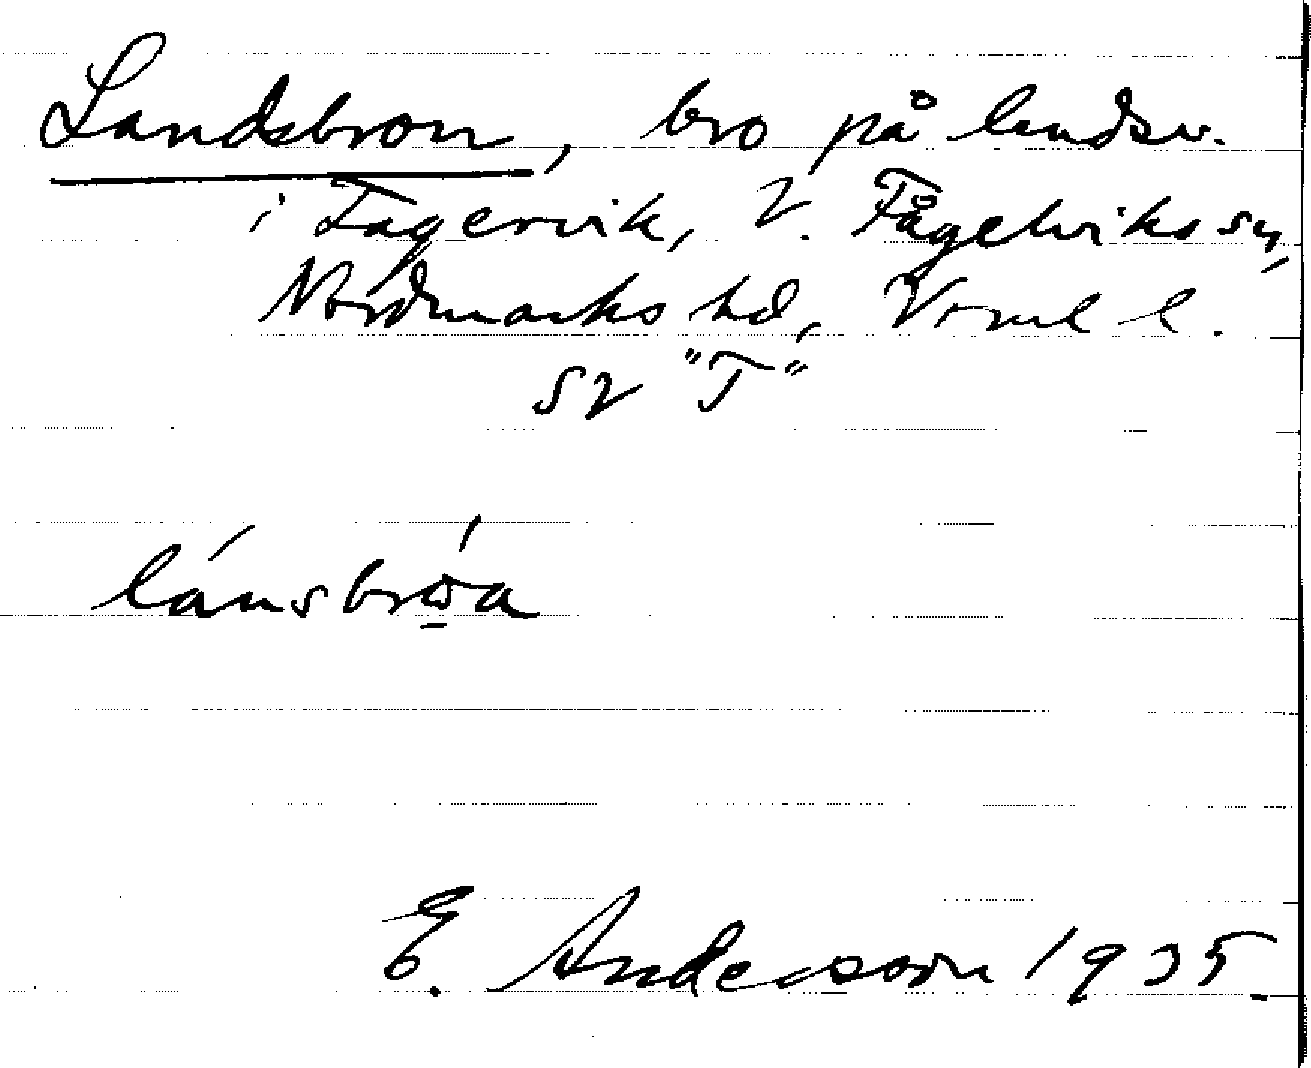 Landsbron, bro på landsv.
i Fagervik, V. Fågelviks sn,
Nordmarks hd, Vrml l.
SV "T"
lánsbróa
E. Andersson 1935